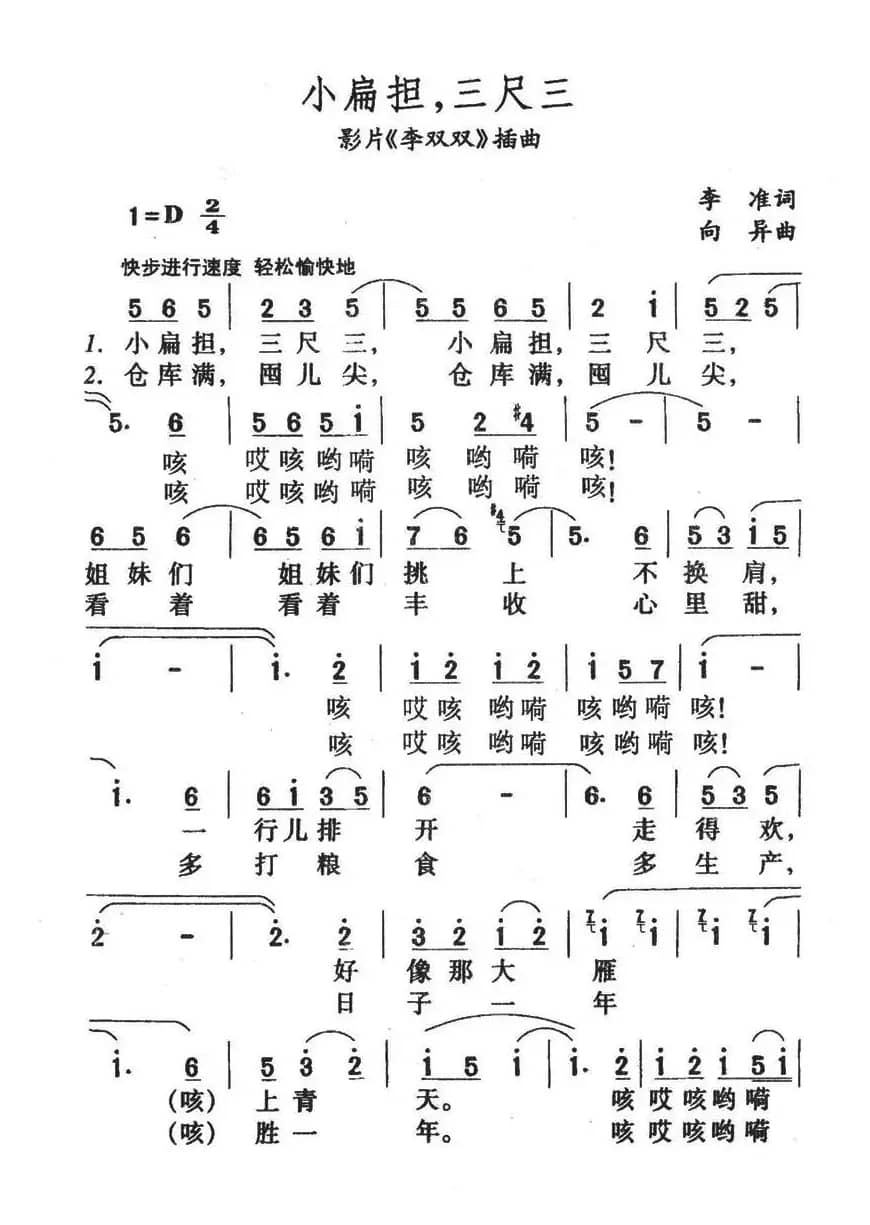 小扁担，三尺三
影片《李双双》插曲
1=D 2/4
李 准词
向 异曲
快步进行速度 轻松愉快地
5 6 5 | 2 3 5 | 5 5 6 5 | 2 i | 5 2 5 |
1. 小扁担，三尺三， 小扁担，三尺三，
2. 仓库满，囤儿尖， 仓库满，囤儿尖，
5. 6 | 5 6 5 i | 5 2 #4 | 5 - | 5 - |
咳 哎咳哟嗬 咳哟嗬 咳！
咳 哎咳哟嗬 咳哟嗬 咳！
6 5 6 | 6 5 6 i | 7 6 #4 5 | 5. 6 | 5 3 i 5 |
姐妹们 姐妹们 挑上 不换肩，
看着 看着 丰收 心里甜，
i - | i. 2 | i 2 i 2 | i 5 7 | i - |
咳 哎咳哟嗬 咳哟嗬 咳！
咳 哎咳哟嗬 咳哟嗬 咳！
i. 6 | 6 i 3 5 | 6 - | 6. 6 | 5 3 5 |
一 行儿排 开 走得欢，
多 打粮 食 多生产，
2 - | 2. 2 | 3 2 i 2 | 7 i 7 i | 7 i 7 i |
好 像那大 雁
日 子一 年
i. 6 | 5 3 2 | i 5 i | i. 2 | i 2 i 5 i |
（咳）上青 天。 咳 哎咳哟嗬
（咳）胜一 年。 咳 哎咳哟嗬